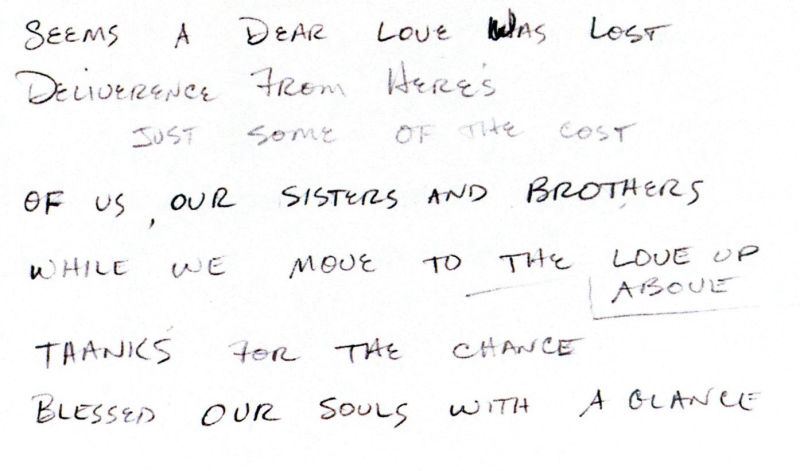 SEEMS A DEAR LOVE WAS LOST
DELIVERENCE FROM HERE'S
JUST SOME OF THE COST
OF US, OUR SISTERS AND BROTHERS
WHILE WE MOVE TO THE LOVE UP
ABOVE
THANKS FOR THE CHANCE
BLESSED OUR SOULS WITH A GLANCE